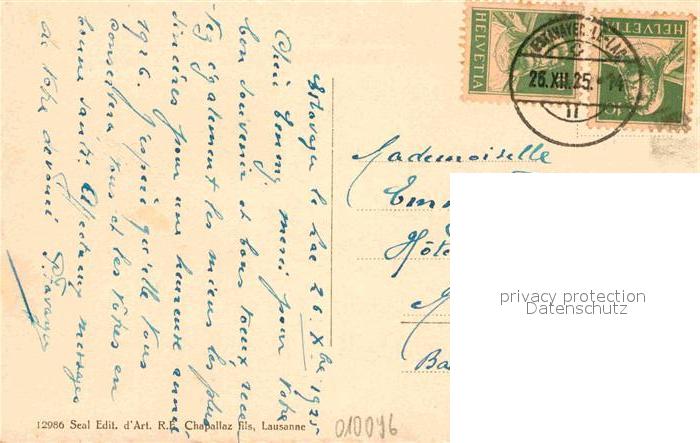 Estavayer le Lac 26 Xbre 1925
Chère Emmy, merci pour votre
bon souvenir et bons voeux rece-
vez également les miens les plus
sincères pour une heureuse année
1926. J'espère qu'elle vous
conservera, vous et les vôtres en
bonne santé. Affectueux messages
de votre dévoué
Mademoiselle
Hôte
Ba
HELVETIA
HELVETIA
10
ESTAVAYER-LE-LAC
26.XII.25.-14
II
privacy protection
Datenschutz
12986 Seal Edit. d'Art. R.E. Chapallaz fils, Lausanne
010096